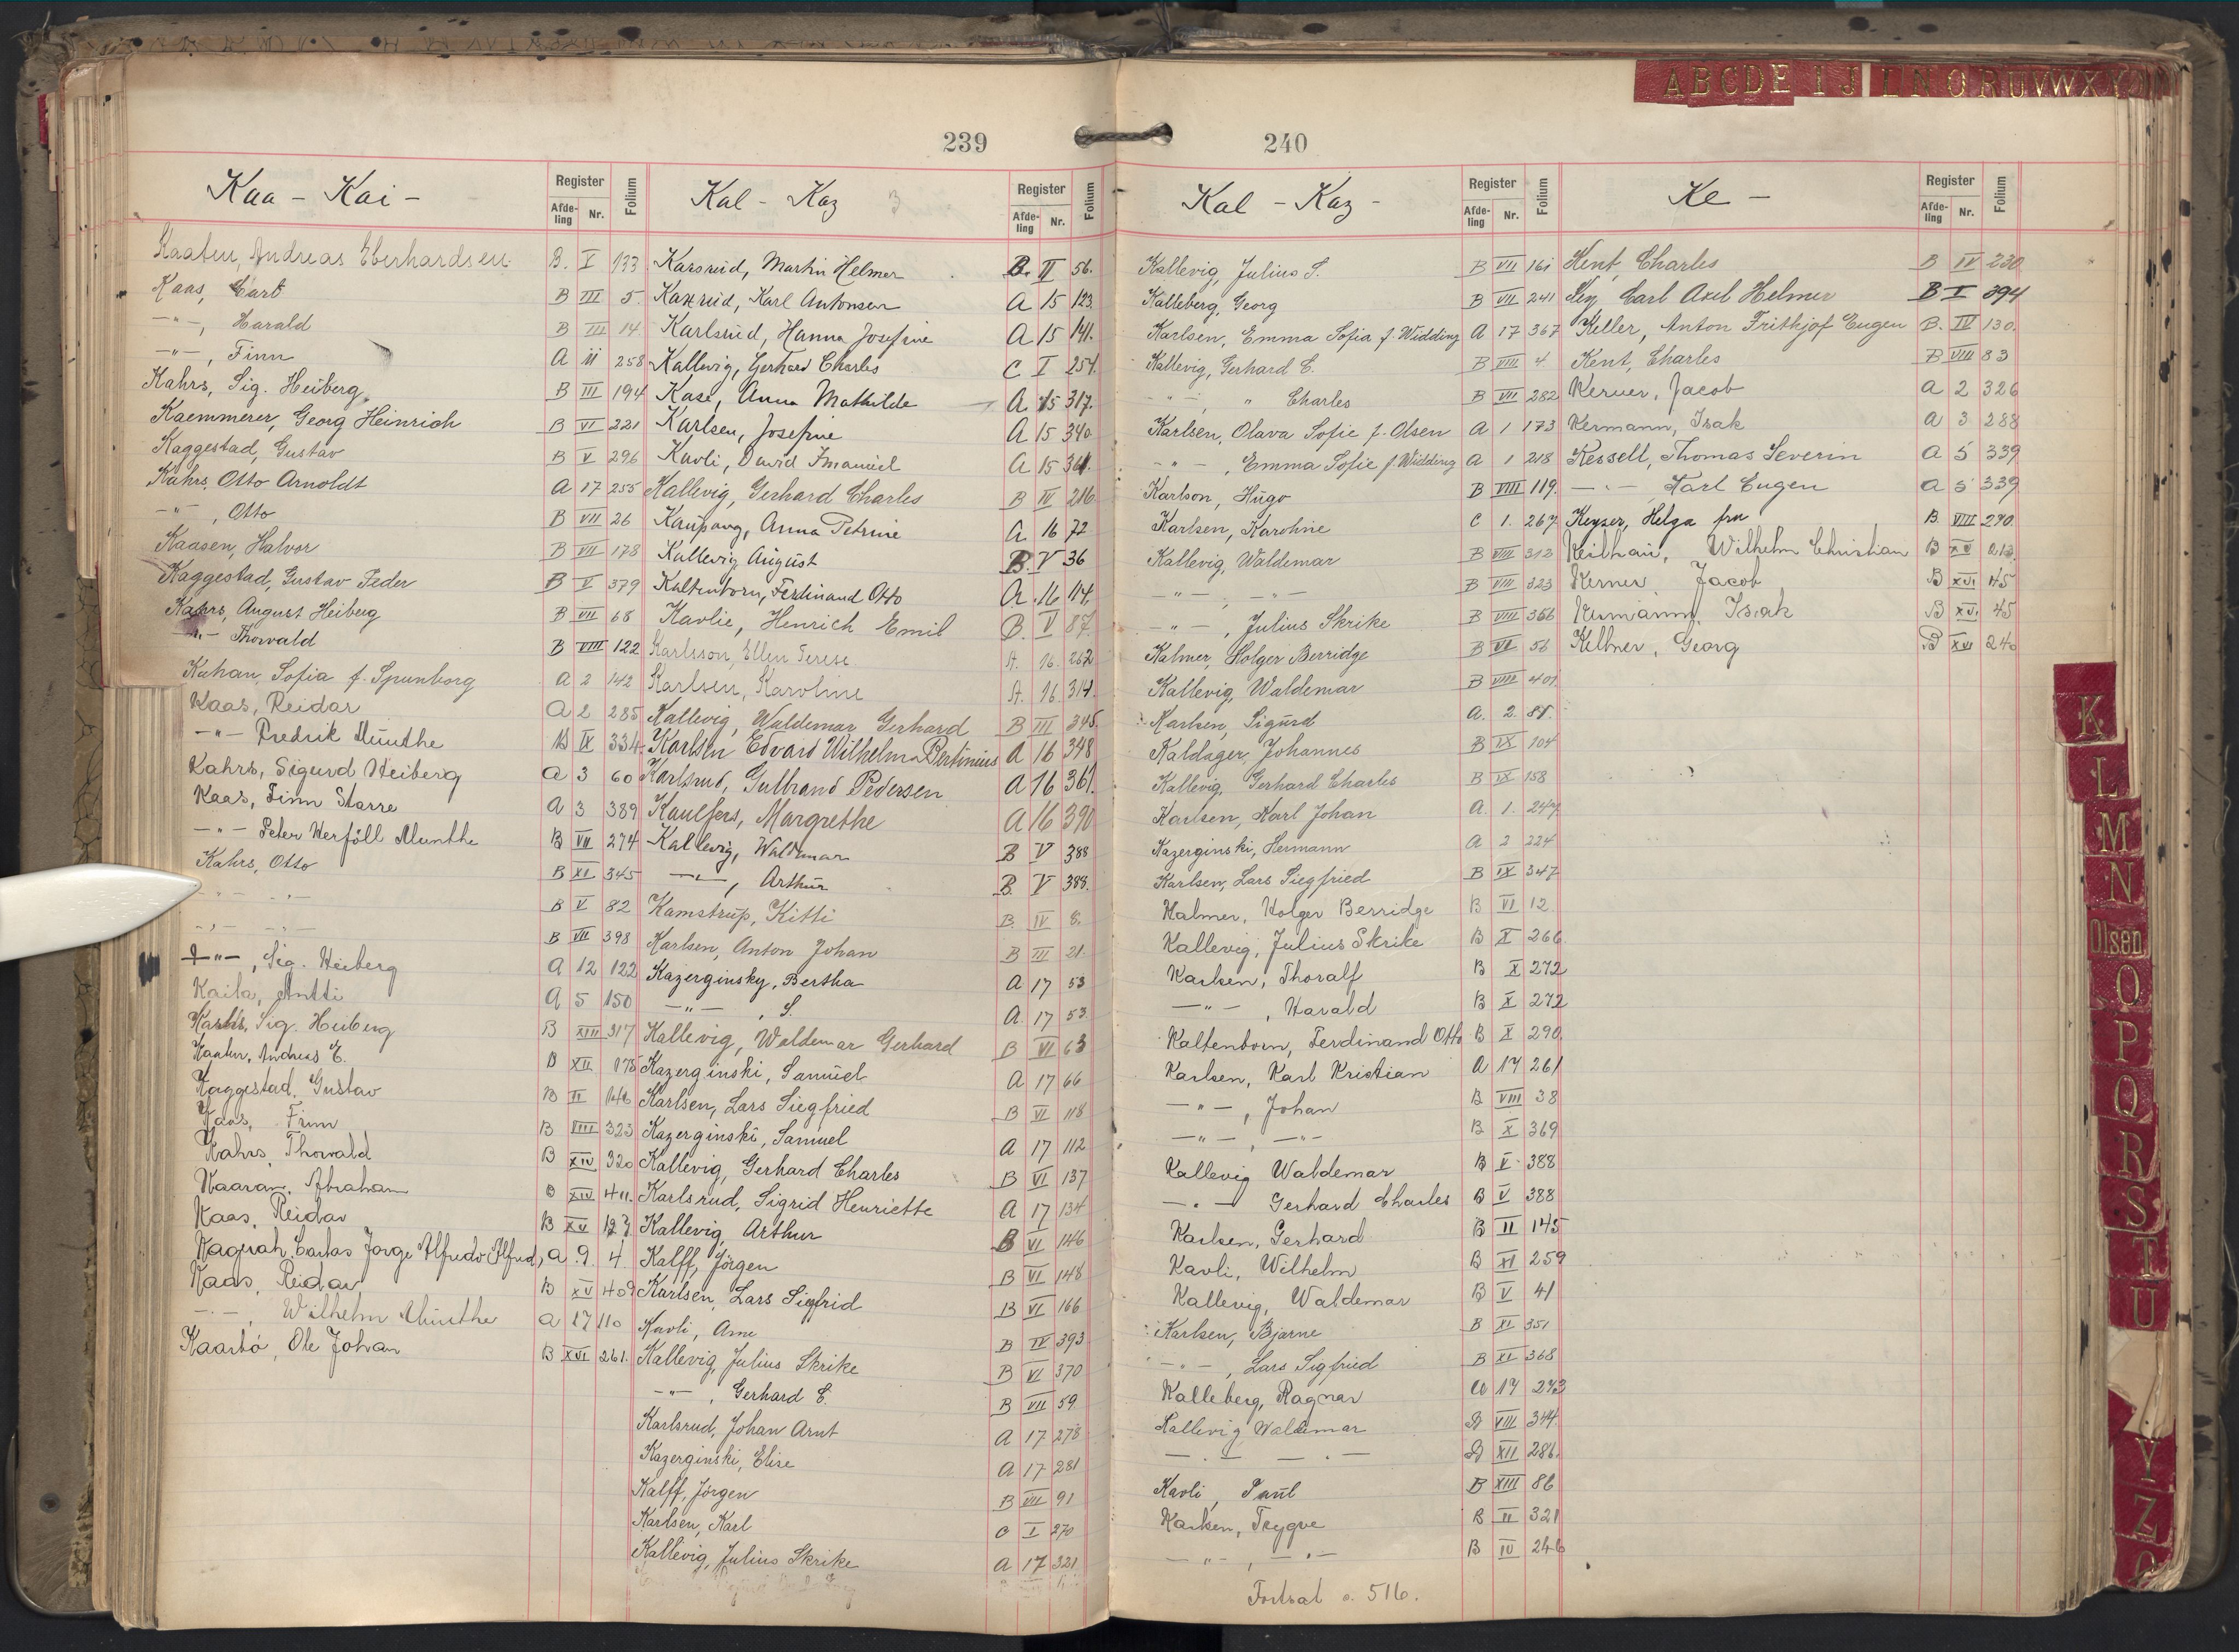 239
Kaa - Kai -
Register
Afde-ling Nr. Folium
Kaaten, Andreas Eberhardsen B. X 133
Kaas, Carl B III 5.
-"-, Harald B III 14
-"-, Finn A 11 258
Kahrs, Sig. Heiberg B III 194
Kaemmerer, Georg Heinrich B VI 221
Kaggestad, Gustav B V 296
Kahrs, Otto Arnoldt A 17 255
-"-, Otto B VII 26
Kaasen, Halvor B VII 178
Kaggestad, Gustav Peder B V 379
Kahrs, August Heiberg B VII 68
-"- Thorvald B VIII 122
Kahan, Sofia f. Spunborg A 2 142
Kaas, Reidar A 2 285
-"- Fredrik Munthe B IX 334
Kahrs, Sigurd Heiberg A 3 60
Kaas, Finn Starre A 3 389
-"- Peter Herföll Munthe B VII 274
Kahrs, Otto B XI 345
-"- -"- B V 82
-"- -"- B VII 398
-"-, Sig. Heiberg A 12 122
Kaila, Antti A 5 150
Kahrs, Sig. Heiberg B XIII 317
Kaaten, Andreas E. B XII 175
Kaggestad, Gustav B II 146
Kaas, Finn B VIII 323
Kahrs, Thorvald B XIV 320
Kaaran, Abraham B XIV 411.
Kaas, Reidar B XV 123
Kagrah, Carlos Jorge Alfredo (Alfred) A 9 4
Kaas, Reidar B XV 409
-"-, Wilhelm Munthe A 17 110
Kaarbó, Ole Johan B XVI 261.
Kal - Kaz 3
Register
Afde-ling Nr. Folium
Karsrud, Martin Helmer B. II 56.
Kaxrud, Karl Antonsen A 15 123
Karlsrud, Hanna Josefine A 15 141.
Kallevig, Gerhard Charles C I 254.
Kase, Anna Mathilde A. 15 317.
Karlsen, Josefine A 15 340
Kavli, David Imanuel A 15 361.
Kallevig, Gerhard Charles B IV 216
Kaupang, Anna Petrine A 16 72
Kallevig August B. V 36
Kaltenborn, Ferdinand Otto A. 16 114.
Kavlie, Henrich Emil B. V 87.
Karlsson, Ellen Terese A. 16. 262
Karlsen, Karoline A. 16 314.
Kallevig, Waldemar Gerhard B III 345.
Karlsen Edvard Wilhelm Bertinius A 16 348
Karlsrud, Gulbrand Pedersen A 16 361.
Kaulfers, Margrethe A 16 390
Kallevig, Waldemar B V 388
-"-, Arthur B. V 388.
Kamstrup, Kitti B. IV 8.
Karlsen, Anton Johan B III 21.
Kazerginsky, Bertha A 17 53
-"-, S. A. 17 53
Kallevig, Waldemar Gerhard B VI 63
Kazerginski, Samuel A 17 66
Karlsen, Lars Siegfried B VI 118
Kazerginski, Samuel A 17 112
Kallevig, Gerhard Charles B VI 137
Karlsrud, Sigrid Henriette A 17 134
Kallevig, Arthur B VI 146
Kalff, Jörgen B VI 148
Karlsen, Lars Siegfrid B VI 166
Kavli, Arne B IV 393
Kallevig, Julius Skrike B VI 370
-"-, Gerhard C. B VII 59
Karlsrud, Johan Arnt A 17 278
Kazerginski, Elise A 17 281
Kalff, Jörgen B VII 91
Karlsen, Karl C I 270
Kallevig, Julius Skrike A 17 321
240
Kal - Kaz -
Register
Afde-ling Nr. Folium
Kallevig, Julius S. B VII 161
Kalleberg, Georg B VII 241
Karlsen, Emma Sofia f. Widding A 17 367
Kallevig, Gerhard C. B VIII 4
-"-, " Charles B VII 282
Karlsen, Olava Sofie f. Olsen A 1 173
-"-, Emma Sofie f. Widding A 1 218
Karlson, Hugo B VIII 119.
Karlsen, Karoline C 1. 267
Kallevig, Waldemar B VIII 312
-"-, -"- B VIII 323
-"-, Julius Skrike B VIII 366
Kalmer, Holger Berridge B VI 56
Kallevig, Waldemar B VIII 401
Karlsen, Sigurd A. 2. 88.
Kaldager, Johannes B IX 104
Kallevig, Gerhard Charles B IX 158
Karlsen, Karl Johan A. 1. 247
Kazerginski, Hermann A 2 224
Karlsen, Lars Siegfried B IX 347
Kalmer, Holger Berridge B VI 12.
Kallevig, Julius Skrike B X 266
Karlsen, Thoralf B X 272
-"-, Harald B X 272
Kaltenborn, Ferdinand Otto B X 290
Karlsen, Karl Kristian A 17 261
-"-, Johan B VIII 38
-"-, -"- B X 369
Kallevig Waldemar B V 388
-"- Gerhard Charles B V 388
Karlsen, Gerhard B II 145
Kavli, Wilhelm B XI 259
Kallevig, Waldemar B V 41
Karlsen, Bjarne B XI 351
-"-, Lars Sigfried B XI 368
Kalleberg, Ragnar A 17 293
Kallevig Waldemar B VIII 344
-"- -"- B XII 286.
Kavli, Paul B XIII 86
Karlsen, Trygve B II 321
-"-, -"- B IV 246
Fortsat s. 516.
Ke -
Register
Afde-ling Nr. Folium
Kent, Charles B IV 230
Key Carl Axel Helmer B I 394
Keller, Anton Frithjof Eugen B. IV 130.
Kent, Charles B VIII 83
Kerner, Jacob A 2 326
Kermann, Isak A 3 288
Kessell, Thomas Severin A 5 339
-"- Karl Eugen A 5 339
Keyser, Helga fru B. VIII 290.
Keilhau, Wilhelm Christian B XV 213
Kerner, Jacob B XVI 45
Kermann, Isak B XVI 45
Kellner, Georg B XVI 240
A B C D E I J L N O R U V W X Y
K
L
M
N
Olsen
O
P
Q
R
S
T
U
Y
Z